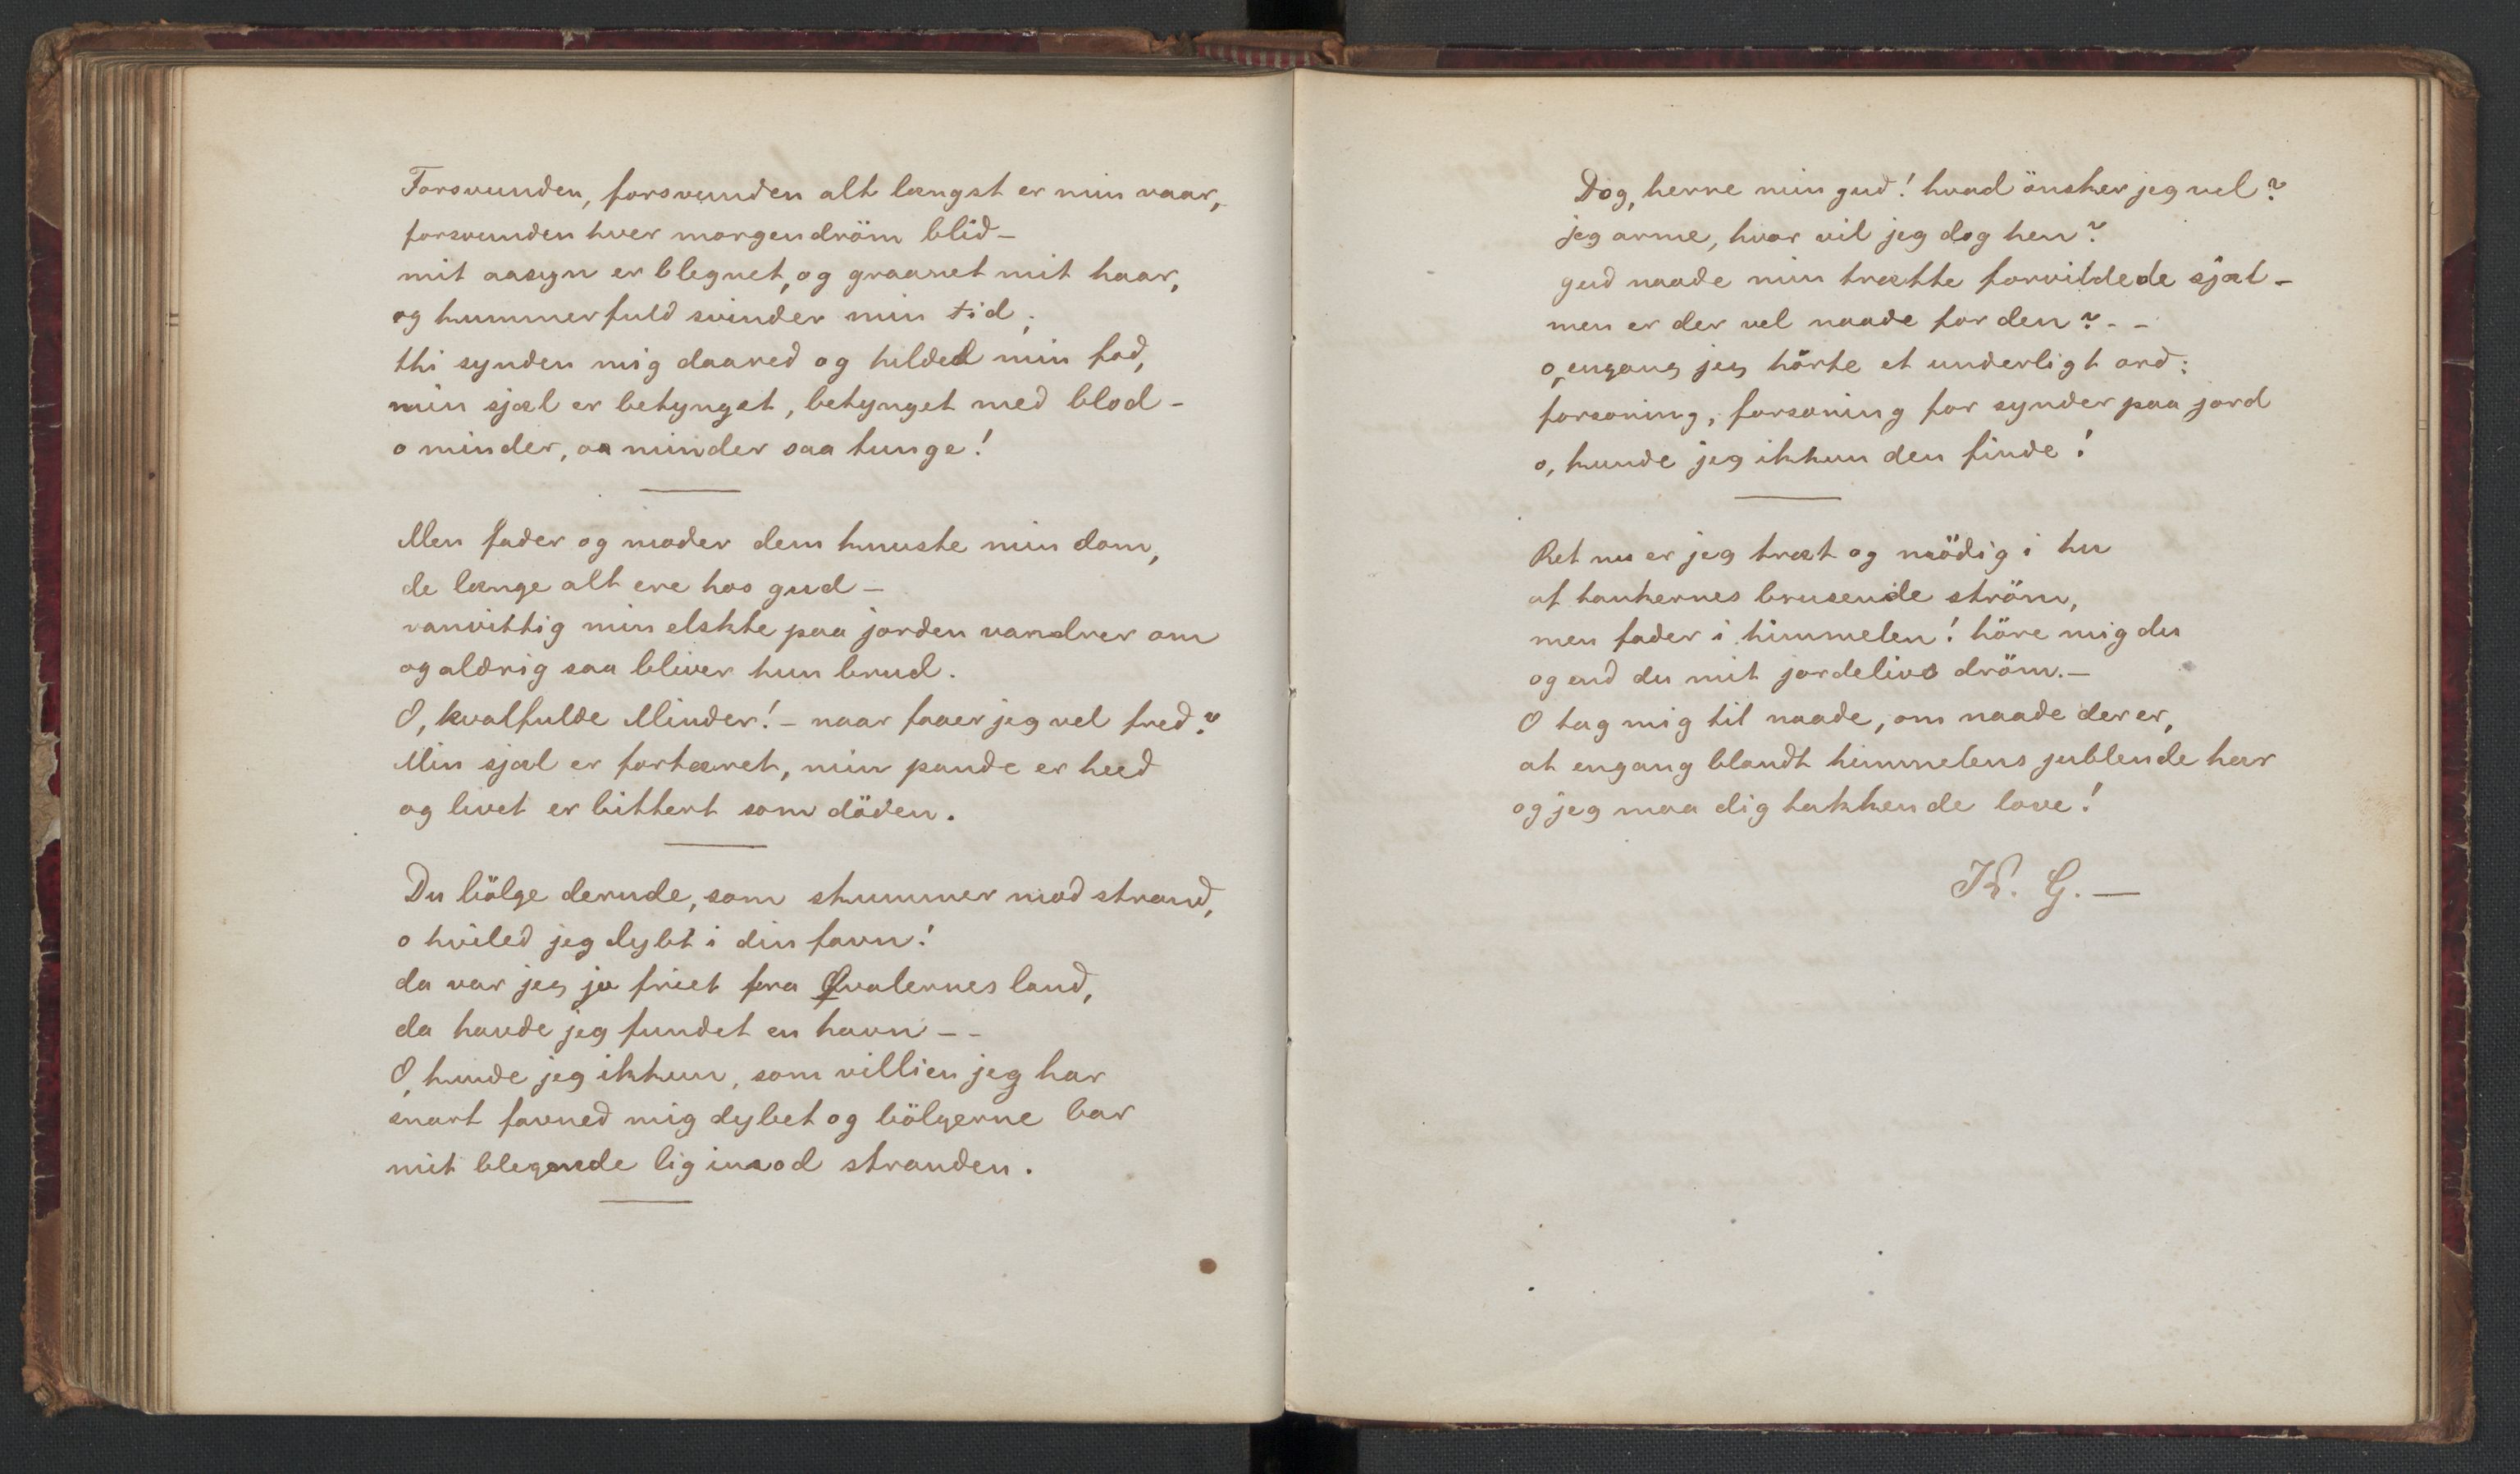 Forsvunden, forsvunden alt længst er min vaar,
forsvunden hver morgendröm blid –
mit aasyn er blegnet, og graanet mit haar,
og kummerfuld svinder min tid;
thi synden mig daared og hilded min fod,
min sjæl er betynget, betynget med blod –
o minder, oa minder saa tunge!
Men fader og moder dem knuste min dom,
de længe alt ere hos gud –
vanvittig min elskte paa jorden vandrer om
og aldrig saa bliver hun brud.
O, kvalfulde Minder! – naar faaer jeg vel fred?
Min sjæl er fortæret, min pande er heed
og livet er bittert som döden.
Du bölge derude, som skummer mod strand,
o hviled jeg dybt i din favn!
da var jeg jo friet fra Qvalernes land,
da havde jeg fundet en havn – –
O, kunde jeg ikkun, som villien jeg har
snart favned mig dybet og bölgerne bar
mit blegnede lig imod stranden.
Dog, herre min gud! hvad önsker jeg vel?
jeg arme, hvor vil jeg dog hen?
gud naade min trætte forvildede sjæl –
men er der vel naade for den? – –
o, engang jeg hörte et underligt ord:
forsoning, forsoning for synder paa jord
o, kunde jeg ikkun den finde!
Ret nu er jeg træt og mödig i hu
af tankernes brusende ström,
men fader i himmelen! höre mig du
og end du mit jordelivs dröm. –
O tag mig til naade, om naade der er,
at engang blandt himmelens jublende hær
og jeg maa dig takkende love!
K. G. –